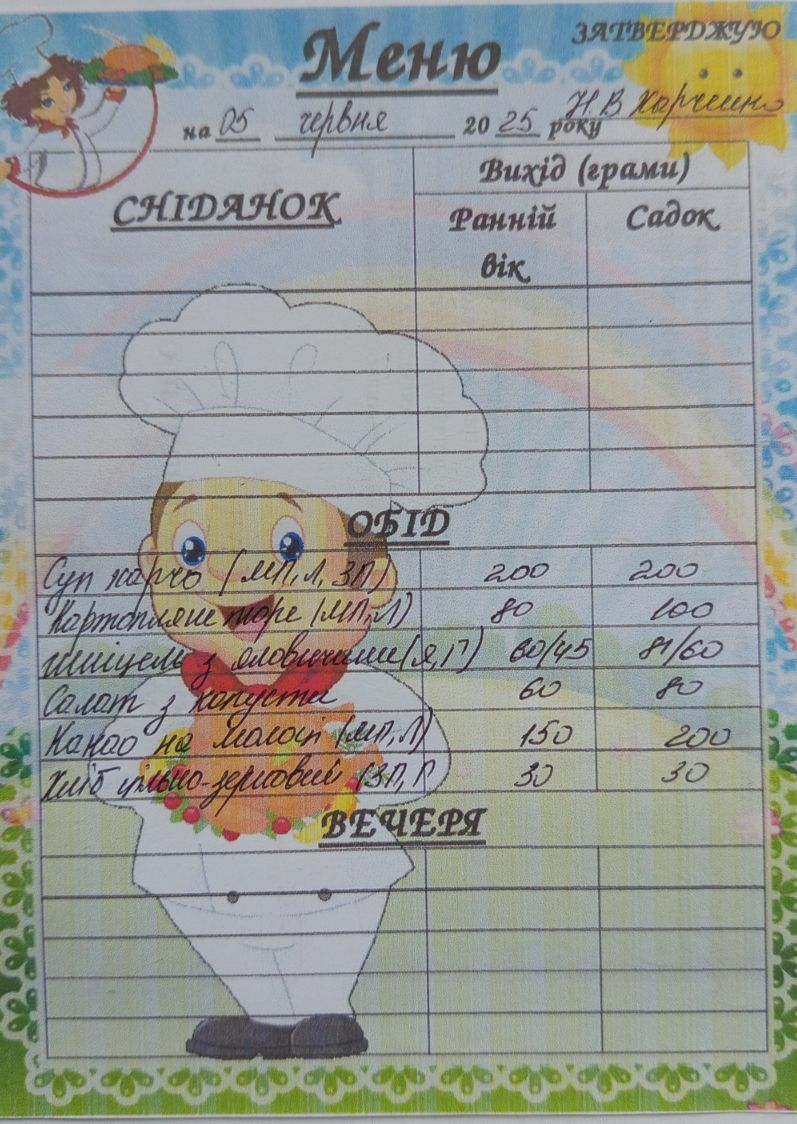 ЗАТВЕРДЖУЮ
Меню
Н В Харченко
на 05 червня 2025 року
СНІДАНОК
Вихід (грами)
Ранній вік
Садок
ОБІД
Суп харчо (МП, Л, ЗП) 200 200
Картопляне пюре (МП, Л) 80 100
Шніцель з яловичини (Я, Г) 60/45 81/60
Салат з капусти 60 80
Какао на молоці (МП, Л) 150 200
Хліб цільно-зерновий (ЗП, Г 30 30
ВЕЧЕРЯ